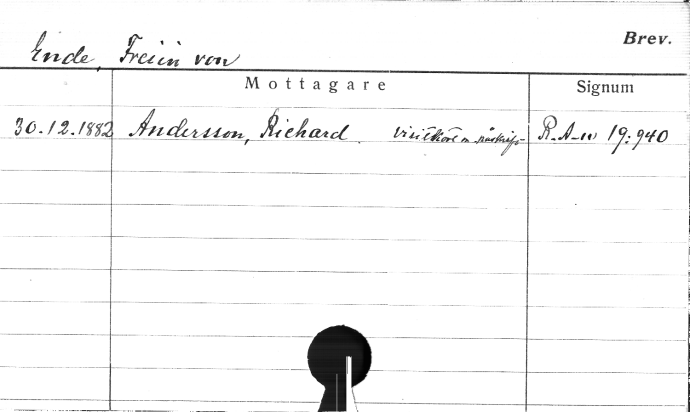 Brev.
Ende, Freiin von
Mottagare Signum
30.12.1882 Andersson, Richard visitkort m. påskrift R.A-n 19:940